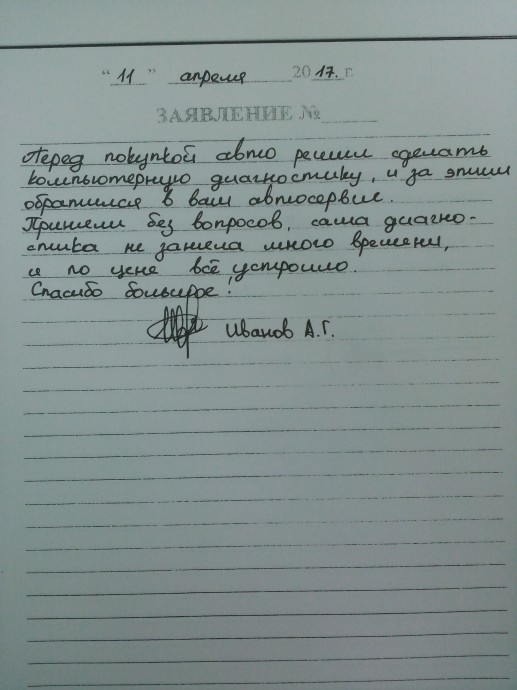 "11" апреля 2017. г.
ЗАЯВЛЕНИЕ №
Перед покупкой авто решил сделать
компьютерную диагностику, и за этим
обратился в ваш автосервис.
Приняли без вопросов, сама диагно-
стика не заняла много времени,
и по цене всё устроило.
Спасибо большое!
Иванов А.Г.